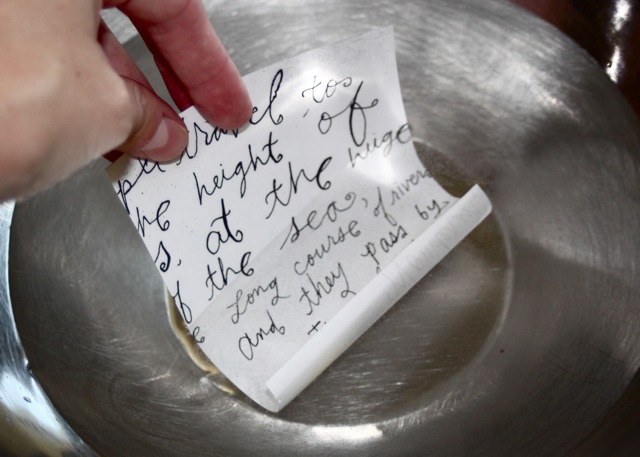 travel to
he height of
s, at the huge
f the sea,
e long course of rivers
and they pass by